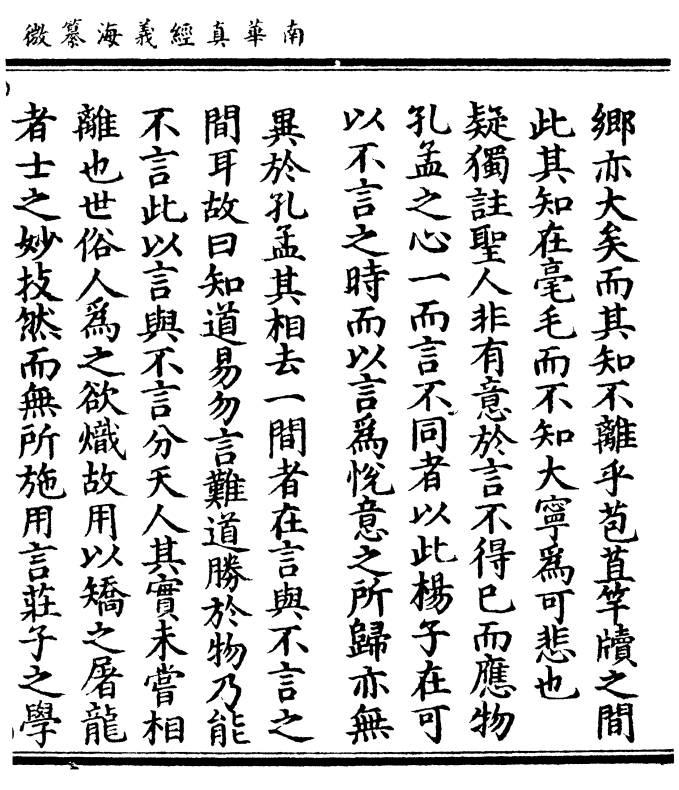 南華真經義海纂微
鄉亦大矣而其知不離乎苞苴竿牘之間
此其知在毫毛而不知大寧爲可悲也
疑獨註聖人非有意於言不得已而應物
孔孟之心一而言不同者以此楊子在可
以不言之時而以言爲悅意之所歸亦無
異於孔孟其相去一間者在言與不言之
間耳故曰知道易勿言難道勝於物乃能
不言此以言與不言分天人其實未嘗相
離也世俗人爲之欲熾故用以矯之屠龍
者士之妙技然而無所施用言莊子之學